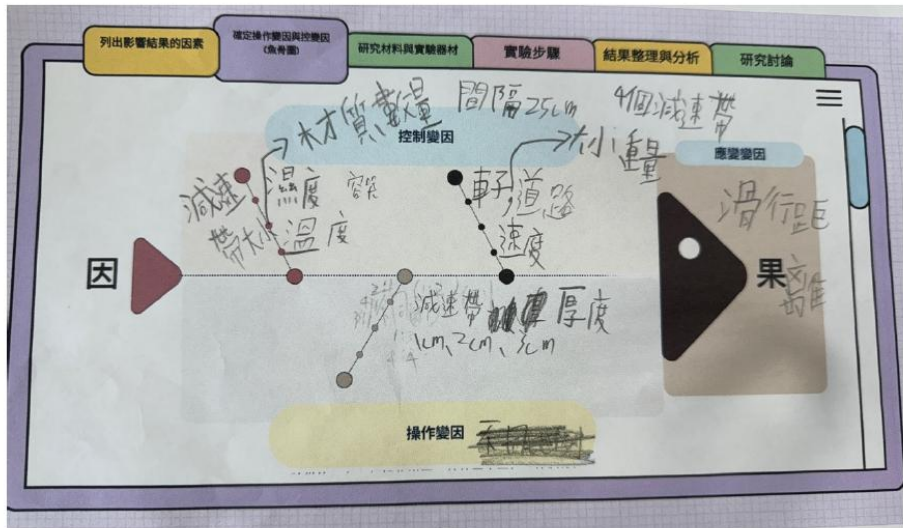 列出影響結果的因素
確定操作變因與控變因
(魚骨圖)
研究材料與實驗器材
實驗步驟
結果整理與分析
研究討論
材質數量 間隔25cm 4個減速帶
控制變因
大小重量
應變變因
減速帶大小
濕度
溫度
車子,道路
速度
滑行距離
因
果
減速帶 厚度
1cm、2cm、3cm
操作變因